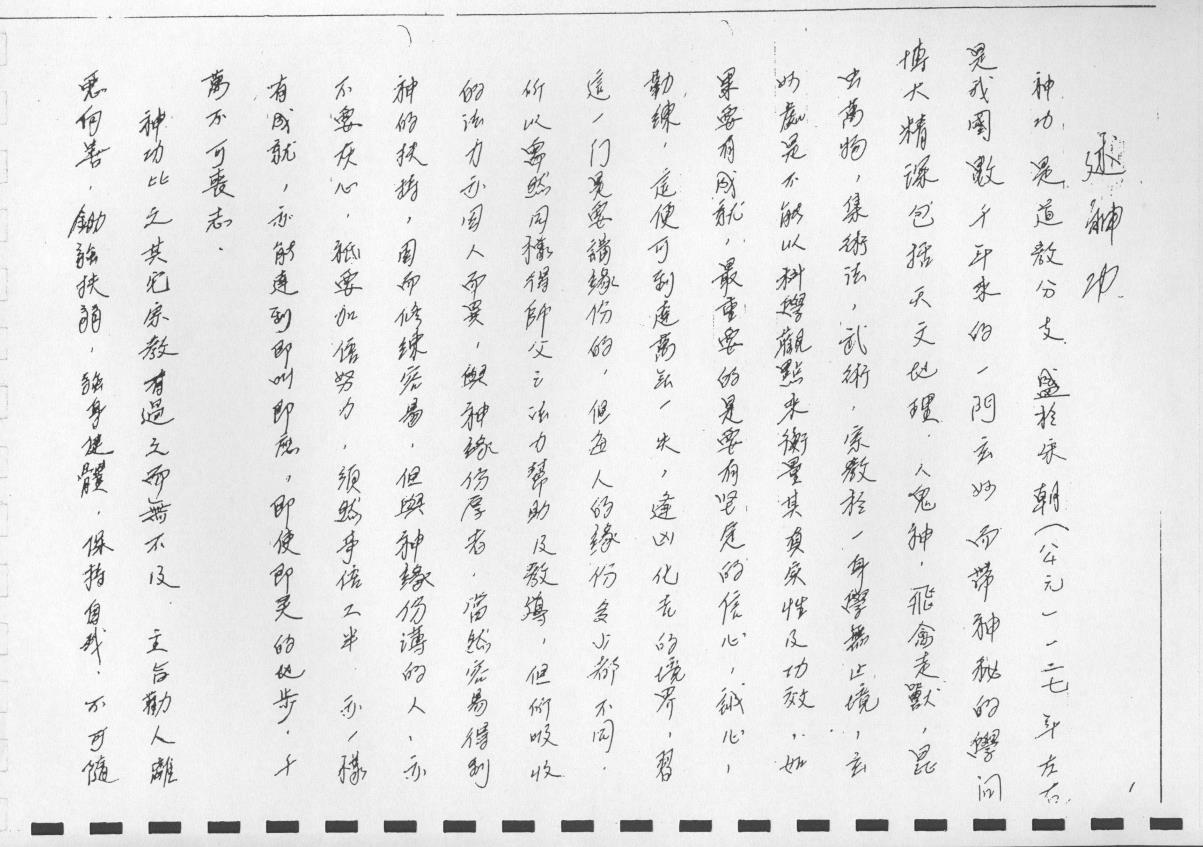 述神功
神功是道教分支盛於宋朝(公元一一二七年左右)
是我國數千年來的一門玄妙而帶神秘的學問
博大精深包括天文地理.人鬼神.飛禽走獸,昆
虫萬物,集術法,武術.宗教於一身學無止境,玄
妙處是不能以科學觀點來衡量其真实性及功效,如
果要有成就,最重要的是要有坚定的信心,誠心,
勤練,這便可到達萬無一失,逢凶化吉的境界,習
這一门是要講緣份的,但每人的緣份多少都不同.
所以雖然同樣得師父之法力幫助及教導,但所吸收
的法力亦因人而異,與神緣份厚者.當然容易得到
神的扶持,因而修練容易,但與神緣份薄的人,亦
不要灰心.祗要加倍努力,須然事倍工半 亦一樣
有成就,亦能達到即叫即應,即使即灵的地步.千
萬不可喪志.
神功比之其它宗教有過之而無不及 主旨勸人離
惡向善.鋤強扶弱,強身健體.保持自我.不可隨